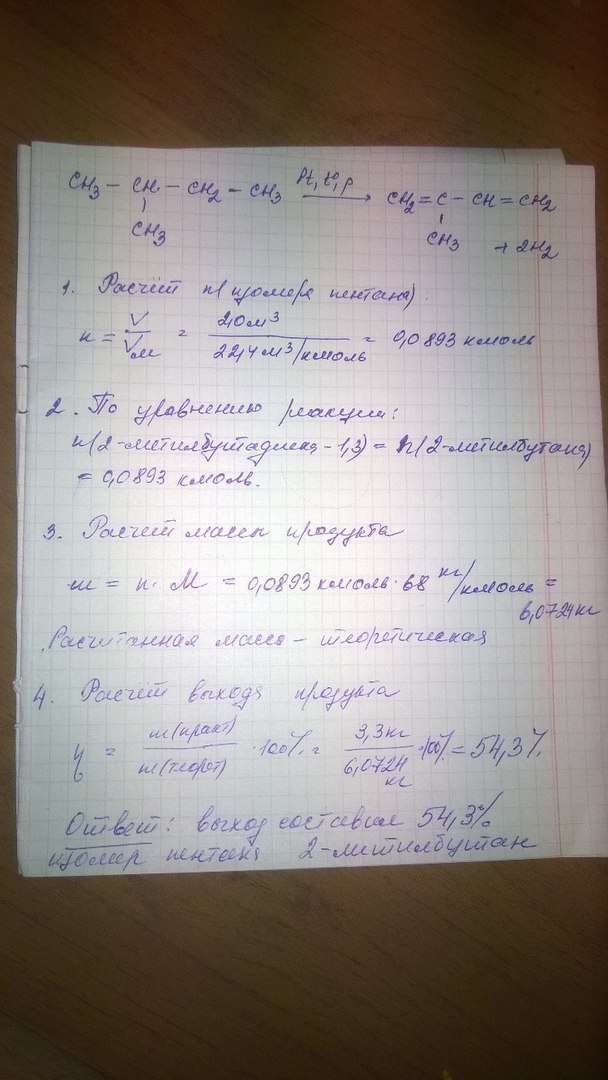 CH3 – CH – CH2 – CH3 Pt, t°, p → CH2 = C – CH = CH2
CH3 CH3 + 2H2
1. Расчёт n(изомера пентана):
n = V/Vм = 2,0 м³ / 22,4 м³/кмоль = 0,0893 кмоль
2. По уравнению реакции:
n(2-метилбутадиена-1,3) = n(2-метилбутана)
= 0,0893 кмоль.
3. Расчёт массы продукта
m = n · M = 0,0893 кмоль · 68 кг/кмоль =
6,0724 кг
Расчитанная масса – теоретическая
4. Расчёт выхода продукта
η = m(практ)/m(теорет) · 100% = 3,3 кг / 6,0724 кг · 100% = 54,3%
Ответ: выход составил 54,3%
изомер пентана 2-метилбутан